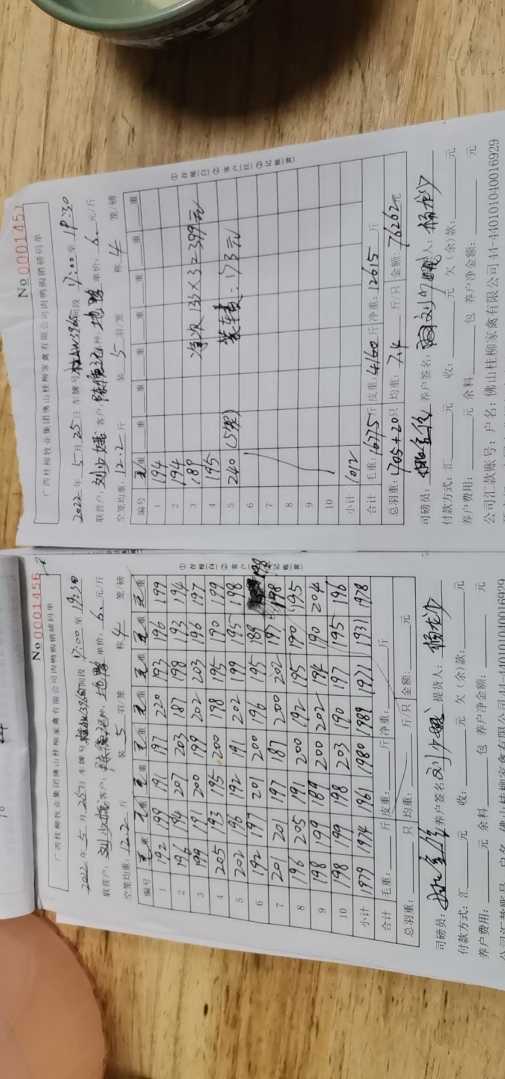 No 0001457
广西桂柳牧业集团佛山桂柳家禽有限公司肉鸭购销磅码单
2022年 5月 25日 车牌号 时段 17:00 至 19:30
联营户: 刘少嫦 客户: 品种: 单价: 6. 元/斤
空笼均重: 12.2 斤 装 5 羽/笼 称 4 笼/磅
编号 毛重 重 重 重 重 重 重
1 194
2 194
3 189
4 195 净次 133×3=399元
5 240 (5笼) 装车费: 173元
6
7
8
9
10
小计 1012
合计 毛重: 16775 斤 皮重: 4160 斤 净重: 12615 斤
总羽重: 1705+20 只 均重: 7.4 斤/只 金额: 76262元
司磅员: 养户签名: 刘少嫦 提货人: 杨龙沙
付款方式: 汇 元 收: 元 欠(余)款: 元
养户费用: 元 余料 包 养户净金额: 元
公司汇款账号: 户名: 佛山桂柳家禽有限公司 44-440101040016929
①存根(白) ②客户(红) ③记账(黄)
No 0001456
广西桂柳牧业集团佛山桂柳家禽有限公司肉鸭购销磅码单
2022年 5月 25日 车牌号 时段 17:00 至 19:30
联营户: 刘少嫦 客户: 品种: 单价: 6. 元/斤
空笼均重: 12.2 斤 装 5 羽/笼 称 4 笼/磅
编号 毛重 毛重 毛重 毛重 毛重 毛重 毛重 毛重
1 192 199 191 197 220 193 196 199
2 196 194 207 203 187 198 193 194
3 199 191 200 199 202 203 196 197
4 205 200 195 200 198 195 190 199
5 202 196 192 191 202 199 195 198
6 192 197 201 200 196 195 188
7 201 201 197 187 200 202 197 198
8 196 205 191 200 192 195 190 195
9 198 199 189 200 202 194 190 204
10 198 199 198 203 190 197 195 196
小计 1979 1974 1961 1980 1989 1971 1931 1978
合计 毛重: 斤 皮重: 斤 净重: 斤
总羽重: 只 均重: 斤/只 金额: 元
司磅员: 养户签名 刘少嫦 提货人: 杨龙沙
付款方式: 汇 元 收: 元 欠(余)款: 元
养户费用: 元 余料 包 养户净金额: 元
公司汇款账号: 户名: 佛山桂柳家禽有限公司 44-440101040016929